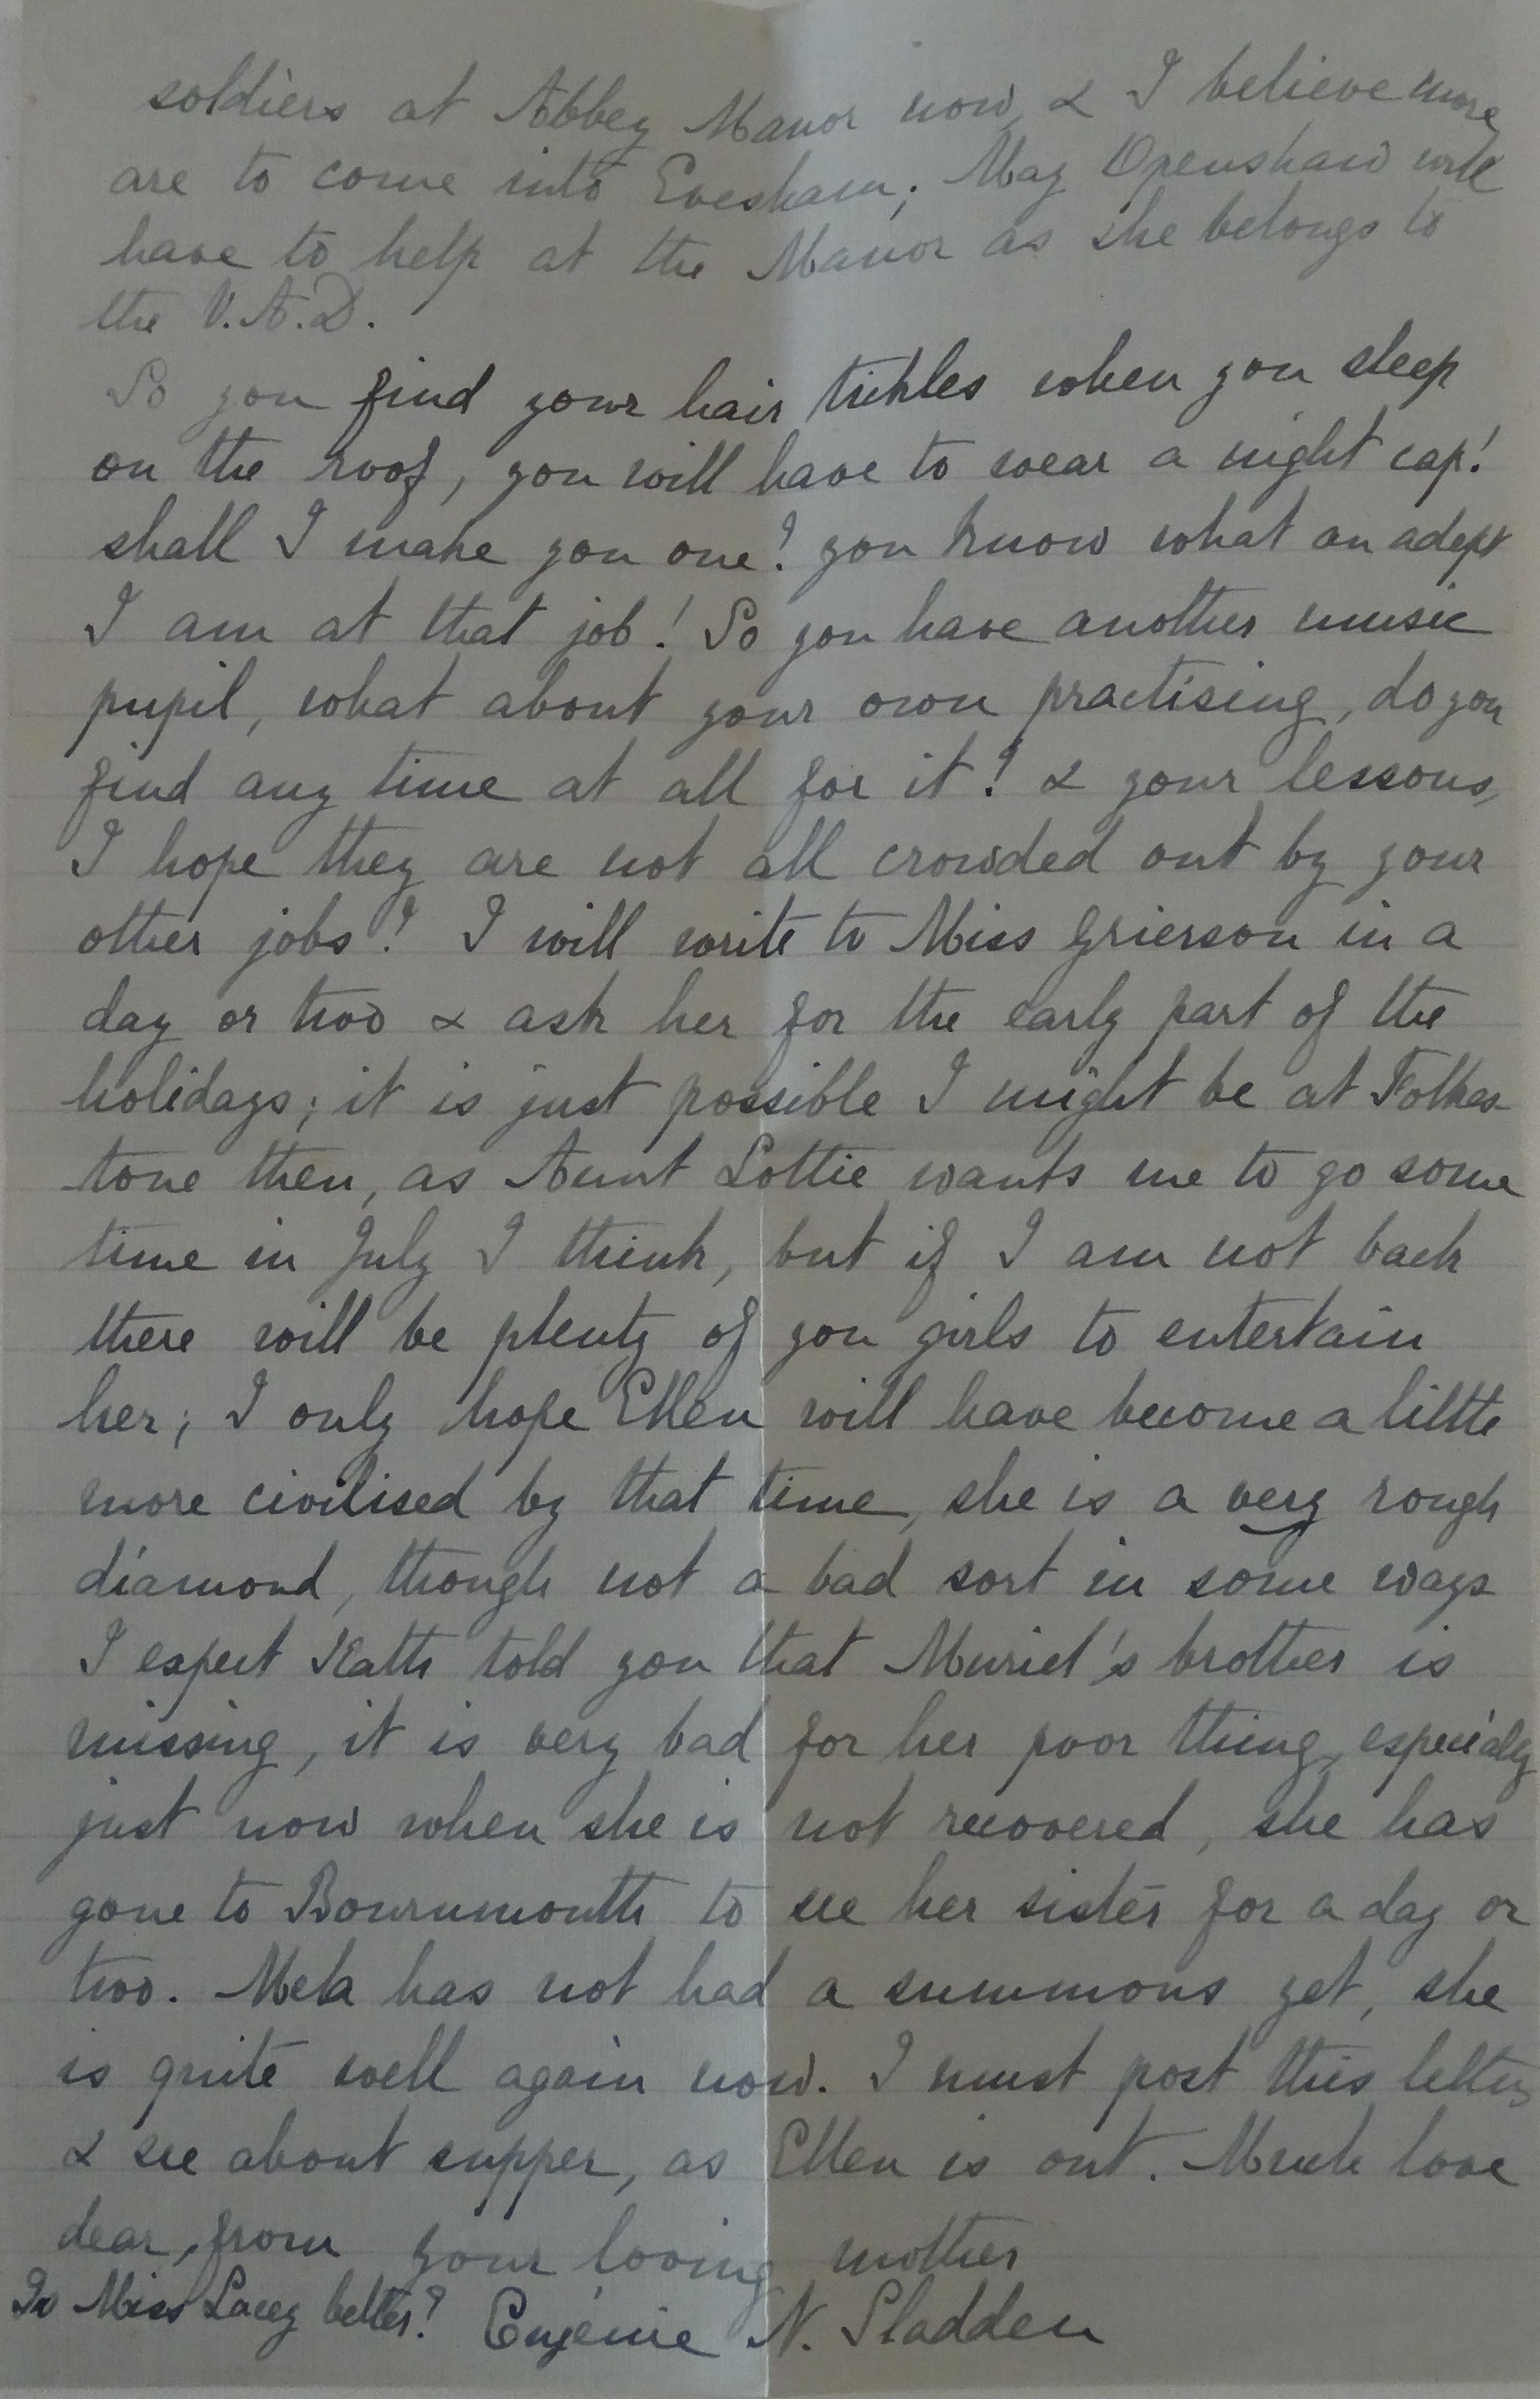 soldiers at Abbey Manor now, & I believe more
are to come into Evesham; May Openshaw will
have to help at the Manor as she belongs to
the V.A.D.
So you find your hair tickles when you sleep
on the roof, you will have to wear a night cap!
shall I make you one? you know what an adept
I am at that job! So you have another music
pupil, what about your own practising, do you
find any time at all for it? & your lessons,
I hope they are not all crowded out by your
other jobs? I will write to Miss Grierson in a
day or two & ask her for the early part of the
holidays; it is just possible I might be at Folkes-
tone then, as Aunt Lottie wants me to go some
time in July I think, but if I am not back
there will be plenty of you girls to entertain
her; I only hope Ellen will have become a little
more civilised by that time, she is a very rough
diamond, though not a bad sort in some ways
I expect Kath told you that Muriel's brother is
missing, it is very bad for her poor thing, especially
just now when she is not recovered, she has
gone to Bournmouth to see her sister for a day or
two. Mela has not had a summons yet, she
is quite well again now. I must post this letter
& see about supper, as Ellen is out. Much love
dear, from your loving mother
Is Miss Lacey better? Eugénie N. Sladden